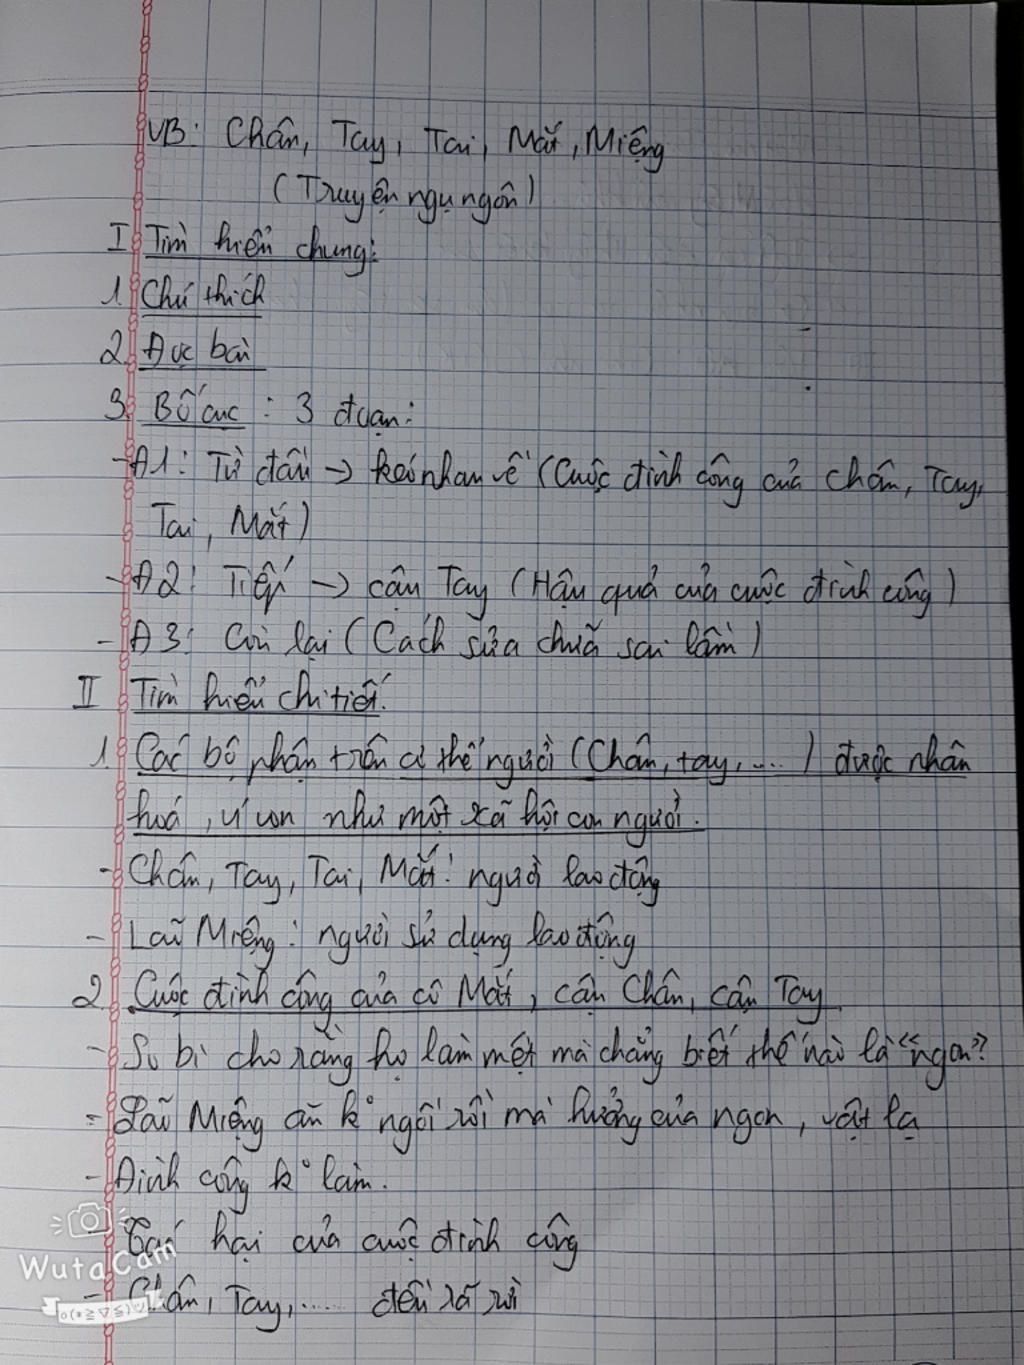 VB: Chân, Tay, Tai, Mắt, Miệng
(Truyện ngụ ngôn)
I Tìm hiểu chung:
1. Chú thích
2. Đọc bài
3. Bố cục: 3 đoạn:
- Đ1: Từ đầu → kéo nhau về (Cuộc đình công của Chân, Tay,
Tai, Mắt)
- Đ2: Tiếp → cậu Tay (Hậu quả của cuộc đình công)
- Đ3: Còn lại (Cách sửa chữa sai lầm)
II Tìm hiểu chi tiết.
1. Các bộ phận trên cơ thể người (Chân, tay, ....) được nhân
hoá, ví von như một xã hội con người.
- Chân, Tay, Tai, Mắt: người lao động
- Lão Miệng: người sử dụng lao động
2. Cuộc đình công của cô Mắt, cậu Chân, cậu Tay.
- So bì cho rằng họ làm mệt mà chẳng biết thế nào là "ngon"?
- Lão Miệng ăn k° ngồi rồi mà hưởng của ngon, vật lạ
- Đình công k° làm.
- Tác hại của cuộc đình công
- Chân, Tay, ..... đều rã rời
WutaCam
o(*≧▽≦)